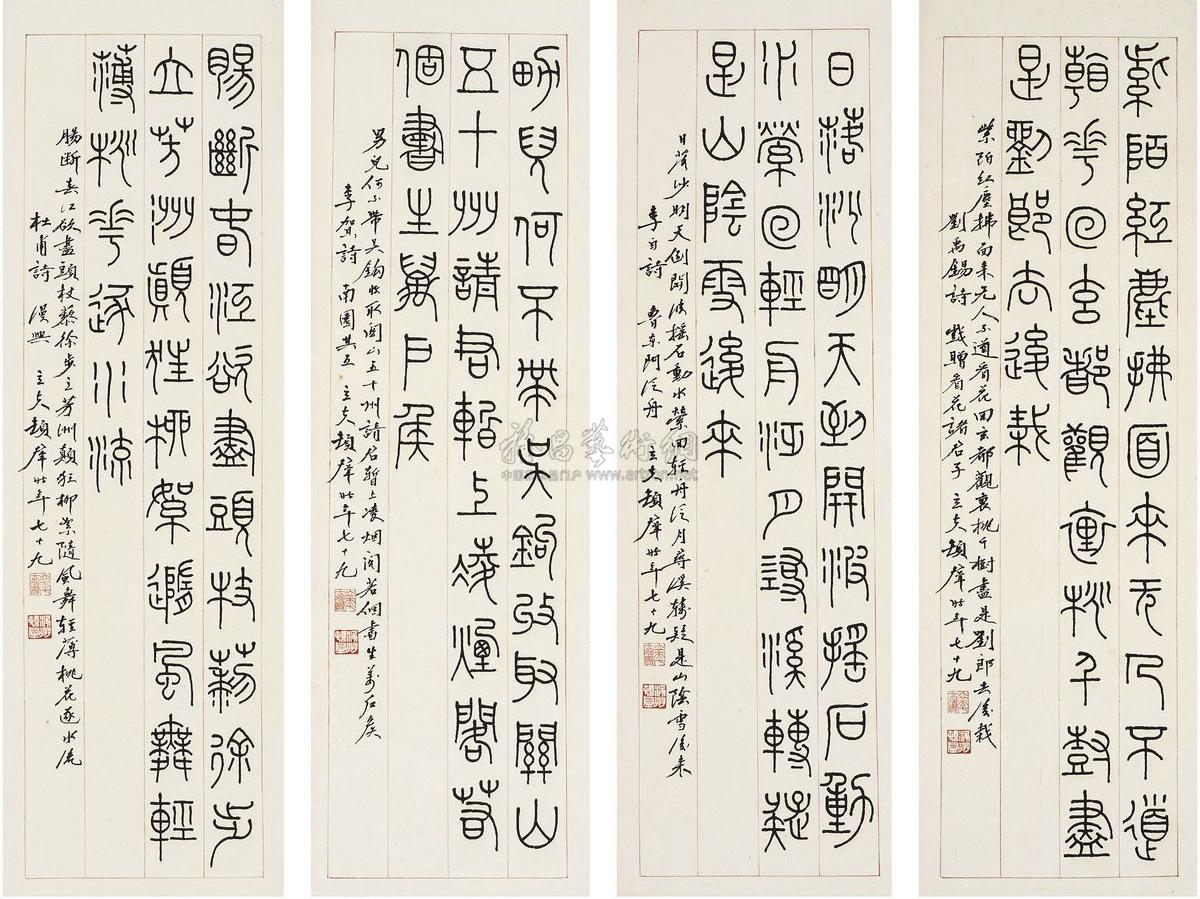 紫陌紅塵拂面來无人不道
看花回玄都觀裏桃千樹盡
是劉郎去後栽
紫陌紅塵拂面來无人不道看花回玄都觀裏桃千樹盡是劉郎去後栽
劉禹錫詩 戲贈看花諸君子 立夫 年七十九
日落沙明天到開波搖石動
水縈回輕舟泛月尋溪轉疑
是山陰雪後來
日落沙明天倒開波搖石動水縈回輕舟泛月尋溪轉疑是山陰雪後來
李白詩 魯東門泛舟 立夫 年七十九
男兒何不帶吳鉤收取關山
五十州請君暫上凌煙閣若
個書生萬戶侯
男兒何不帶吳鉤收取關山五十州請君暫上凌烟閣若個書生萬户侯
李賀詩 南園其五 立夫 年七十九
腸斷春江欲盡頭杖藜徐步
立芳洲顛狂柳絮隨風舞輕
薄桃花逐水流
腸斷春江欲盡頭杖藜徐步立芳洲顛狂柳絮隨風舞輕薄桃花逐水流
杜甫詩 漫興 立夫 年七十九